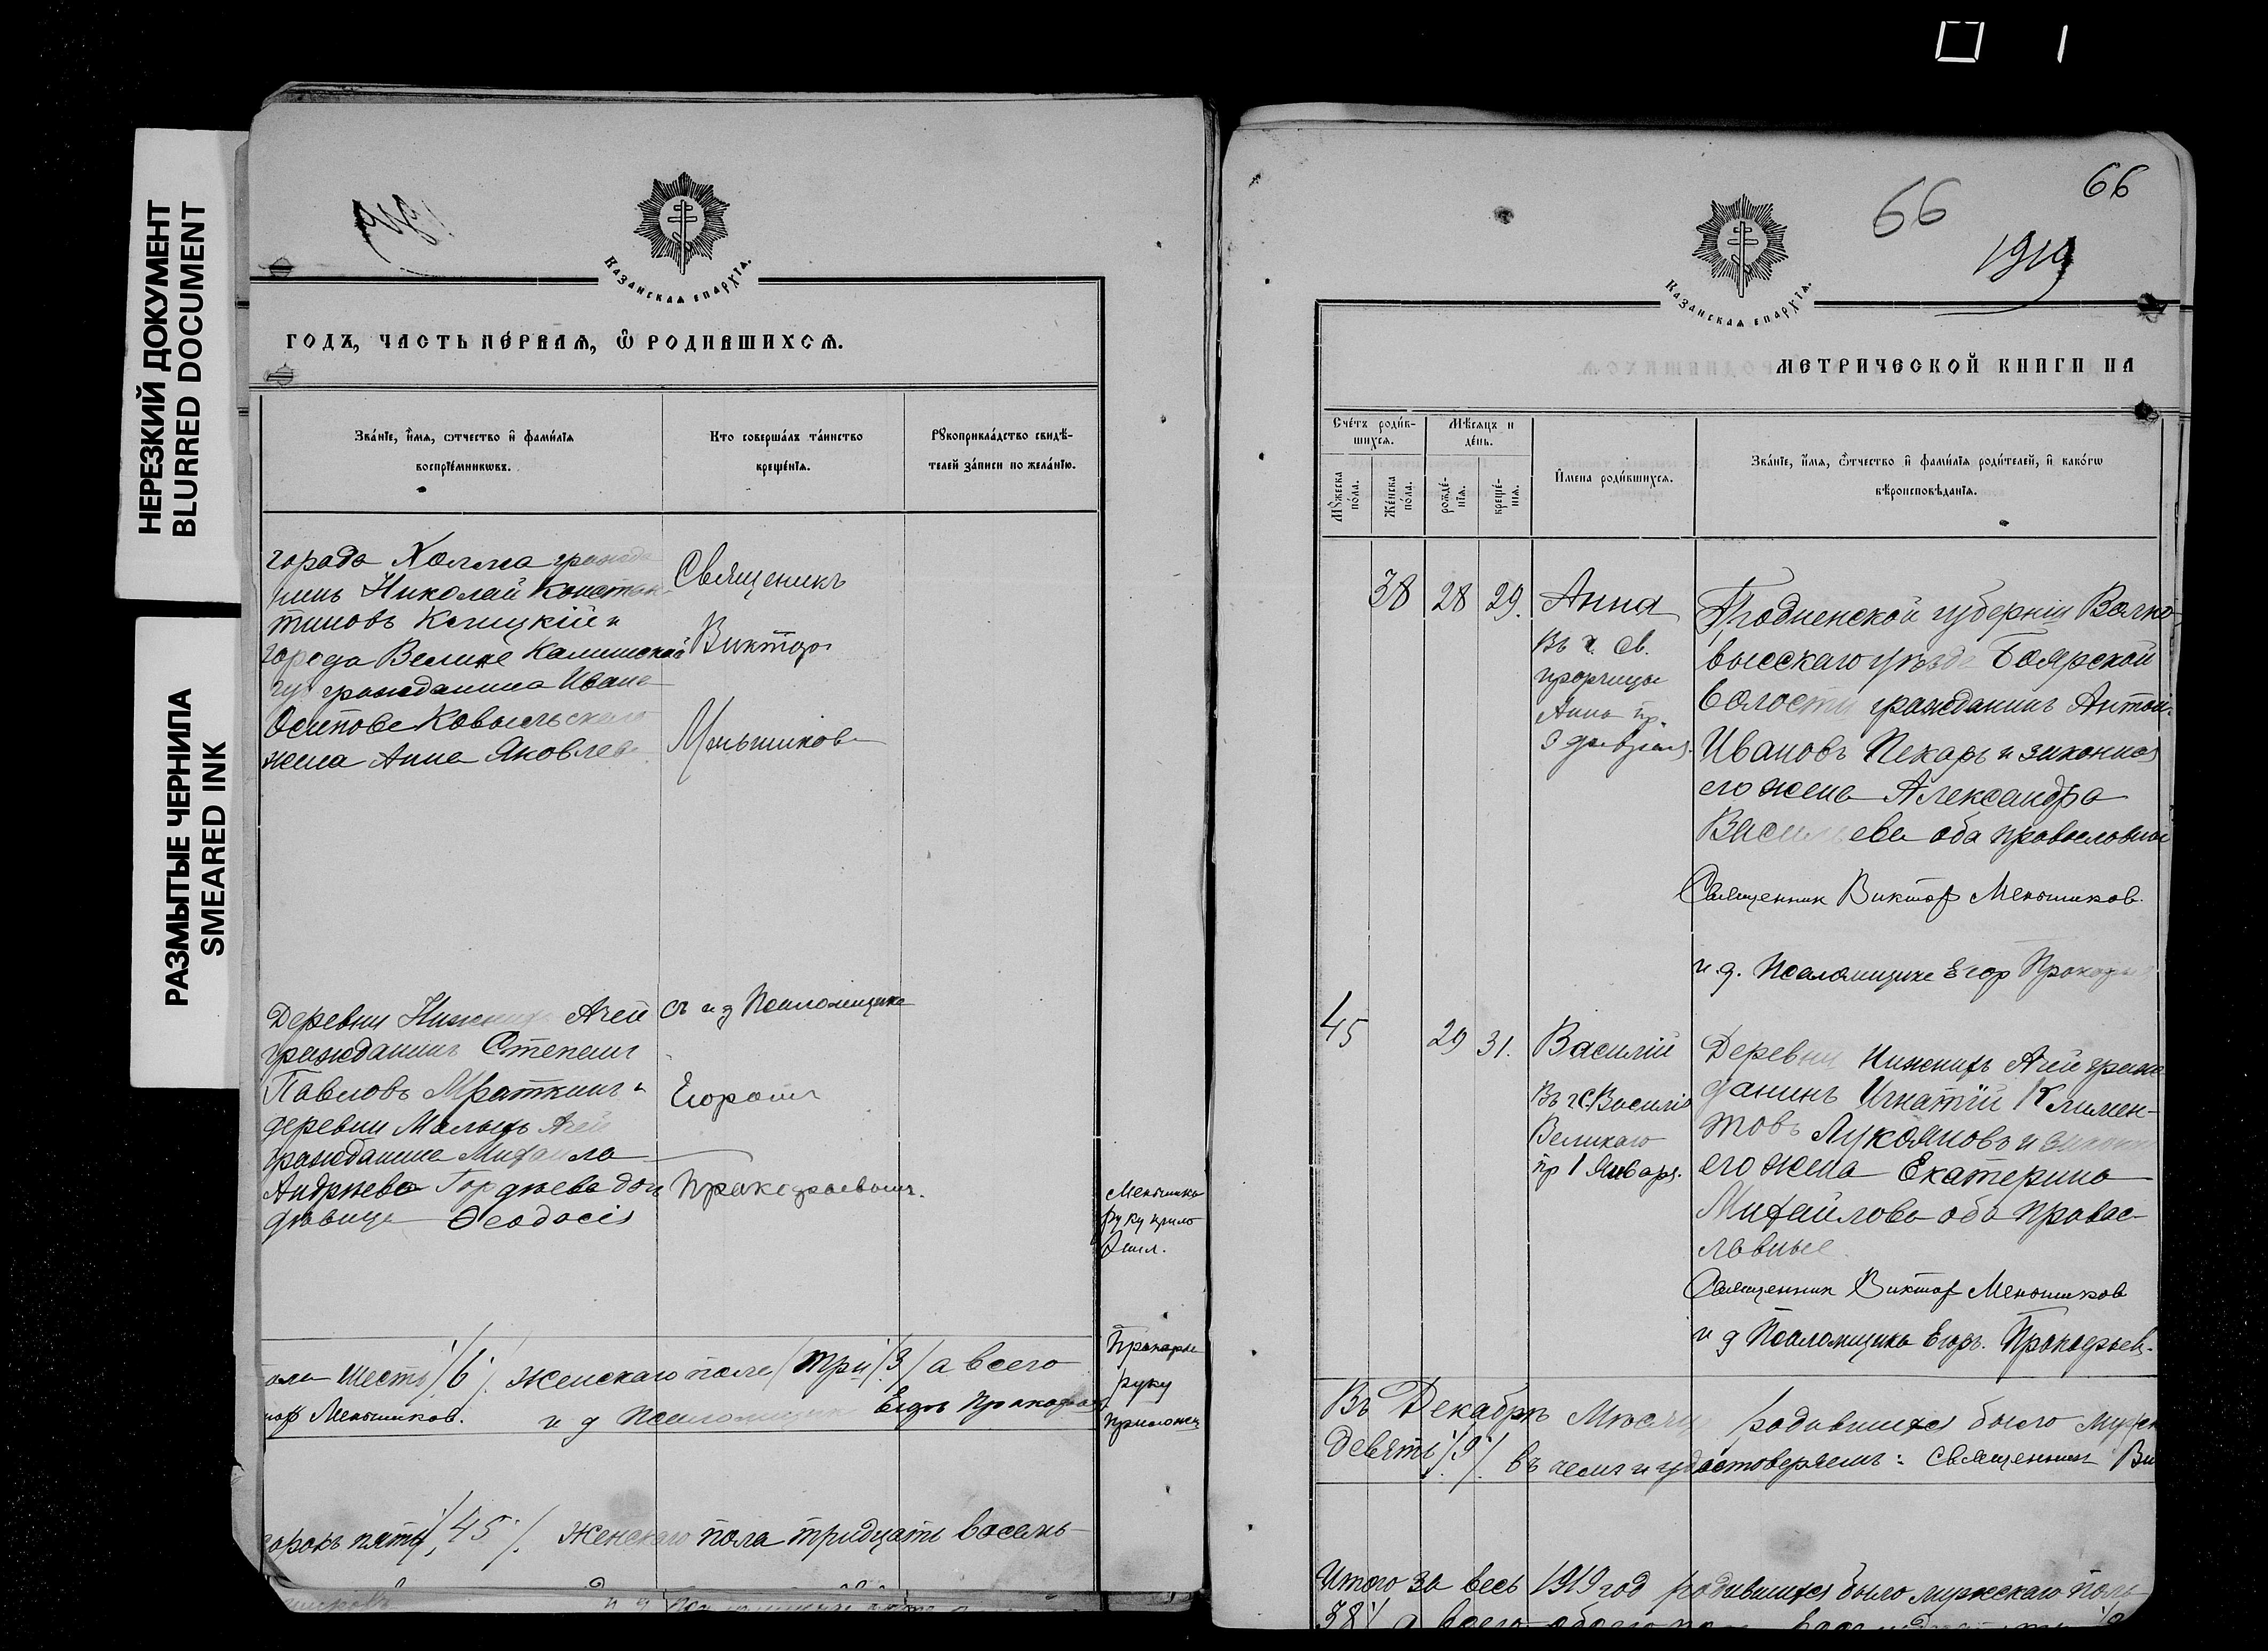 НЕРЕЗКИЙ ДОКУМЕНТ
BLURRED DOCUMENT
РАЗМЫТЫЕ ЧЕРНИЛА
SMEARED INK
Казанская епархія.
годъ, часть первая, ѿ родившихся.
Званіе, имя, отчество и фамилія
воспріемниковъ.
Кто совершалъ таинство
крещенія.
Рукоприкладство свидѣ-
телей записи по желанію.
города Холма
Николай Констан-
тиновъ и
города
гражданина Ивана
Осипова
жена Анна Яковлева
Священикъ
Викторъ
Меньшиковъ
Деревни Нижнихъ Ачей
гражданинъ Степанъ
Павловъ и
деревни Малыхъ Ачей
гражданина Михаила
Андрѣева Гордѣева дочь
дѣвица Ѳеодосія
съ и д Псаломщика
Егоромъ
Прокофьевымъ.
Меньшиков
руку прило
Прокофье
руку
приложил
шесть /6/. женскаго пола /три/3/ а всего
Меньшиков. и д Псаломщика Егоръ Прокофьев
сорокъ пять /45/. женскаго пола тридцать восемь
66
66
1919
Казанская епархія.
метрической книги на
Счетъ родив-
шихся.
Мѣсяцъ и
день.
Мужеска
пола.
Женска
пола.
рожде-
нія.
креще-
нія.
Имена родившихся.
Званіе, имя, отчество и фамилія родителей, и какого
вѣроисповѣданія.
38 28 29. Анна
Въ ч. св.
пророчицы
Анны пр.
3 февраля.
Гродненской губерніи Волко-
высскаго уѣзда Боярской
волости гражданинъ Антон.
Ивановъ Пекарь и законная
его жена Александра
Васильева оба православные
Священник Виктор Меньшиков.
и.д. Псаломщика Егор Прокофьев
45 29 31. Василій
Въ ч. с. Василія
Великаго
пр 1 Января.
Деревни Нижнихъ Ачей граж-
данинъ Игнатій Климен-
товъ Лукояновъ и законн
его жена Екатерина
Михайлова оба правос-
лавные
Священник Виктор Меньшиков
и д Псаломщика Егоръ. Прокофьев.
Въ Декабрѣ Мѣсяцѣ родившихся было мужск
девять /9/. въ чемъ и удостоверяемъ: Священникъ Ви
Итого за весь 1919 год родившихся было мужскаго пола
38/ а всего обоего